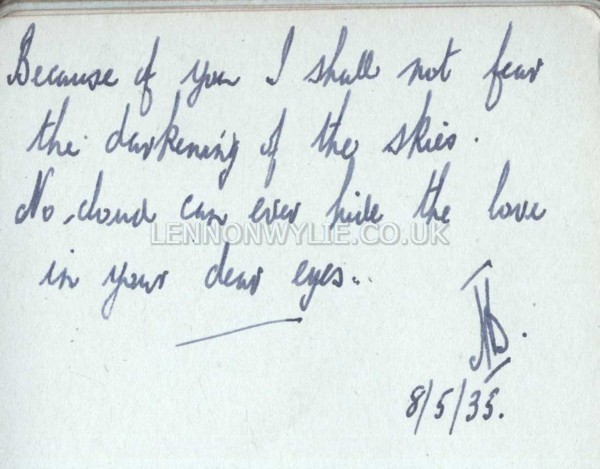 Because of you I shall not fear
the darkening of the skies.
No cloud can ever hide the love
LENNONWYLIE.CO.UK
in your dear eyes.
8/5/35.